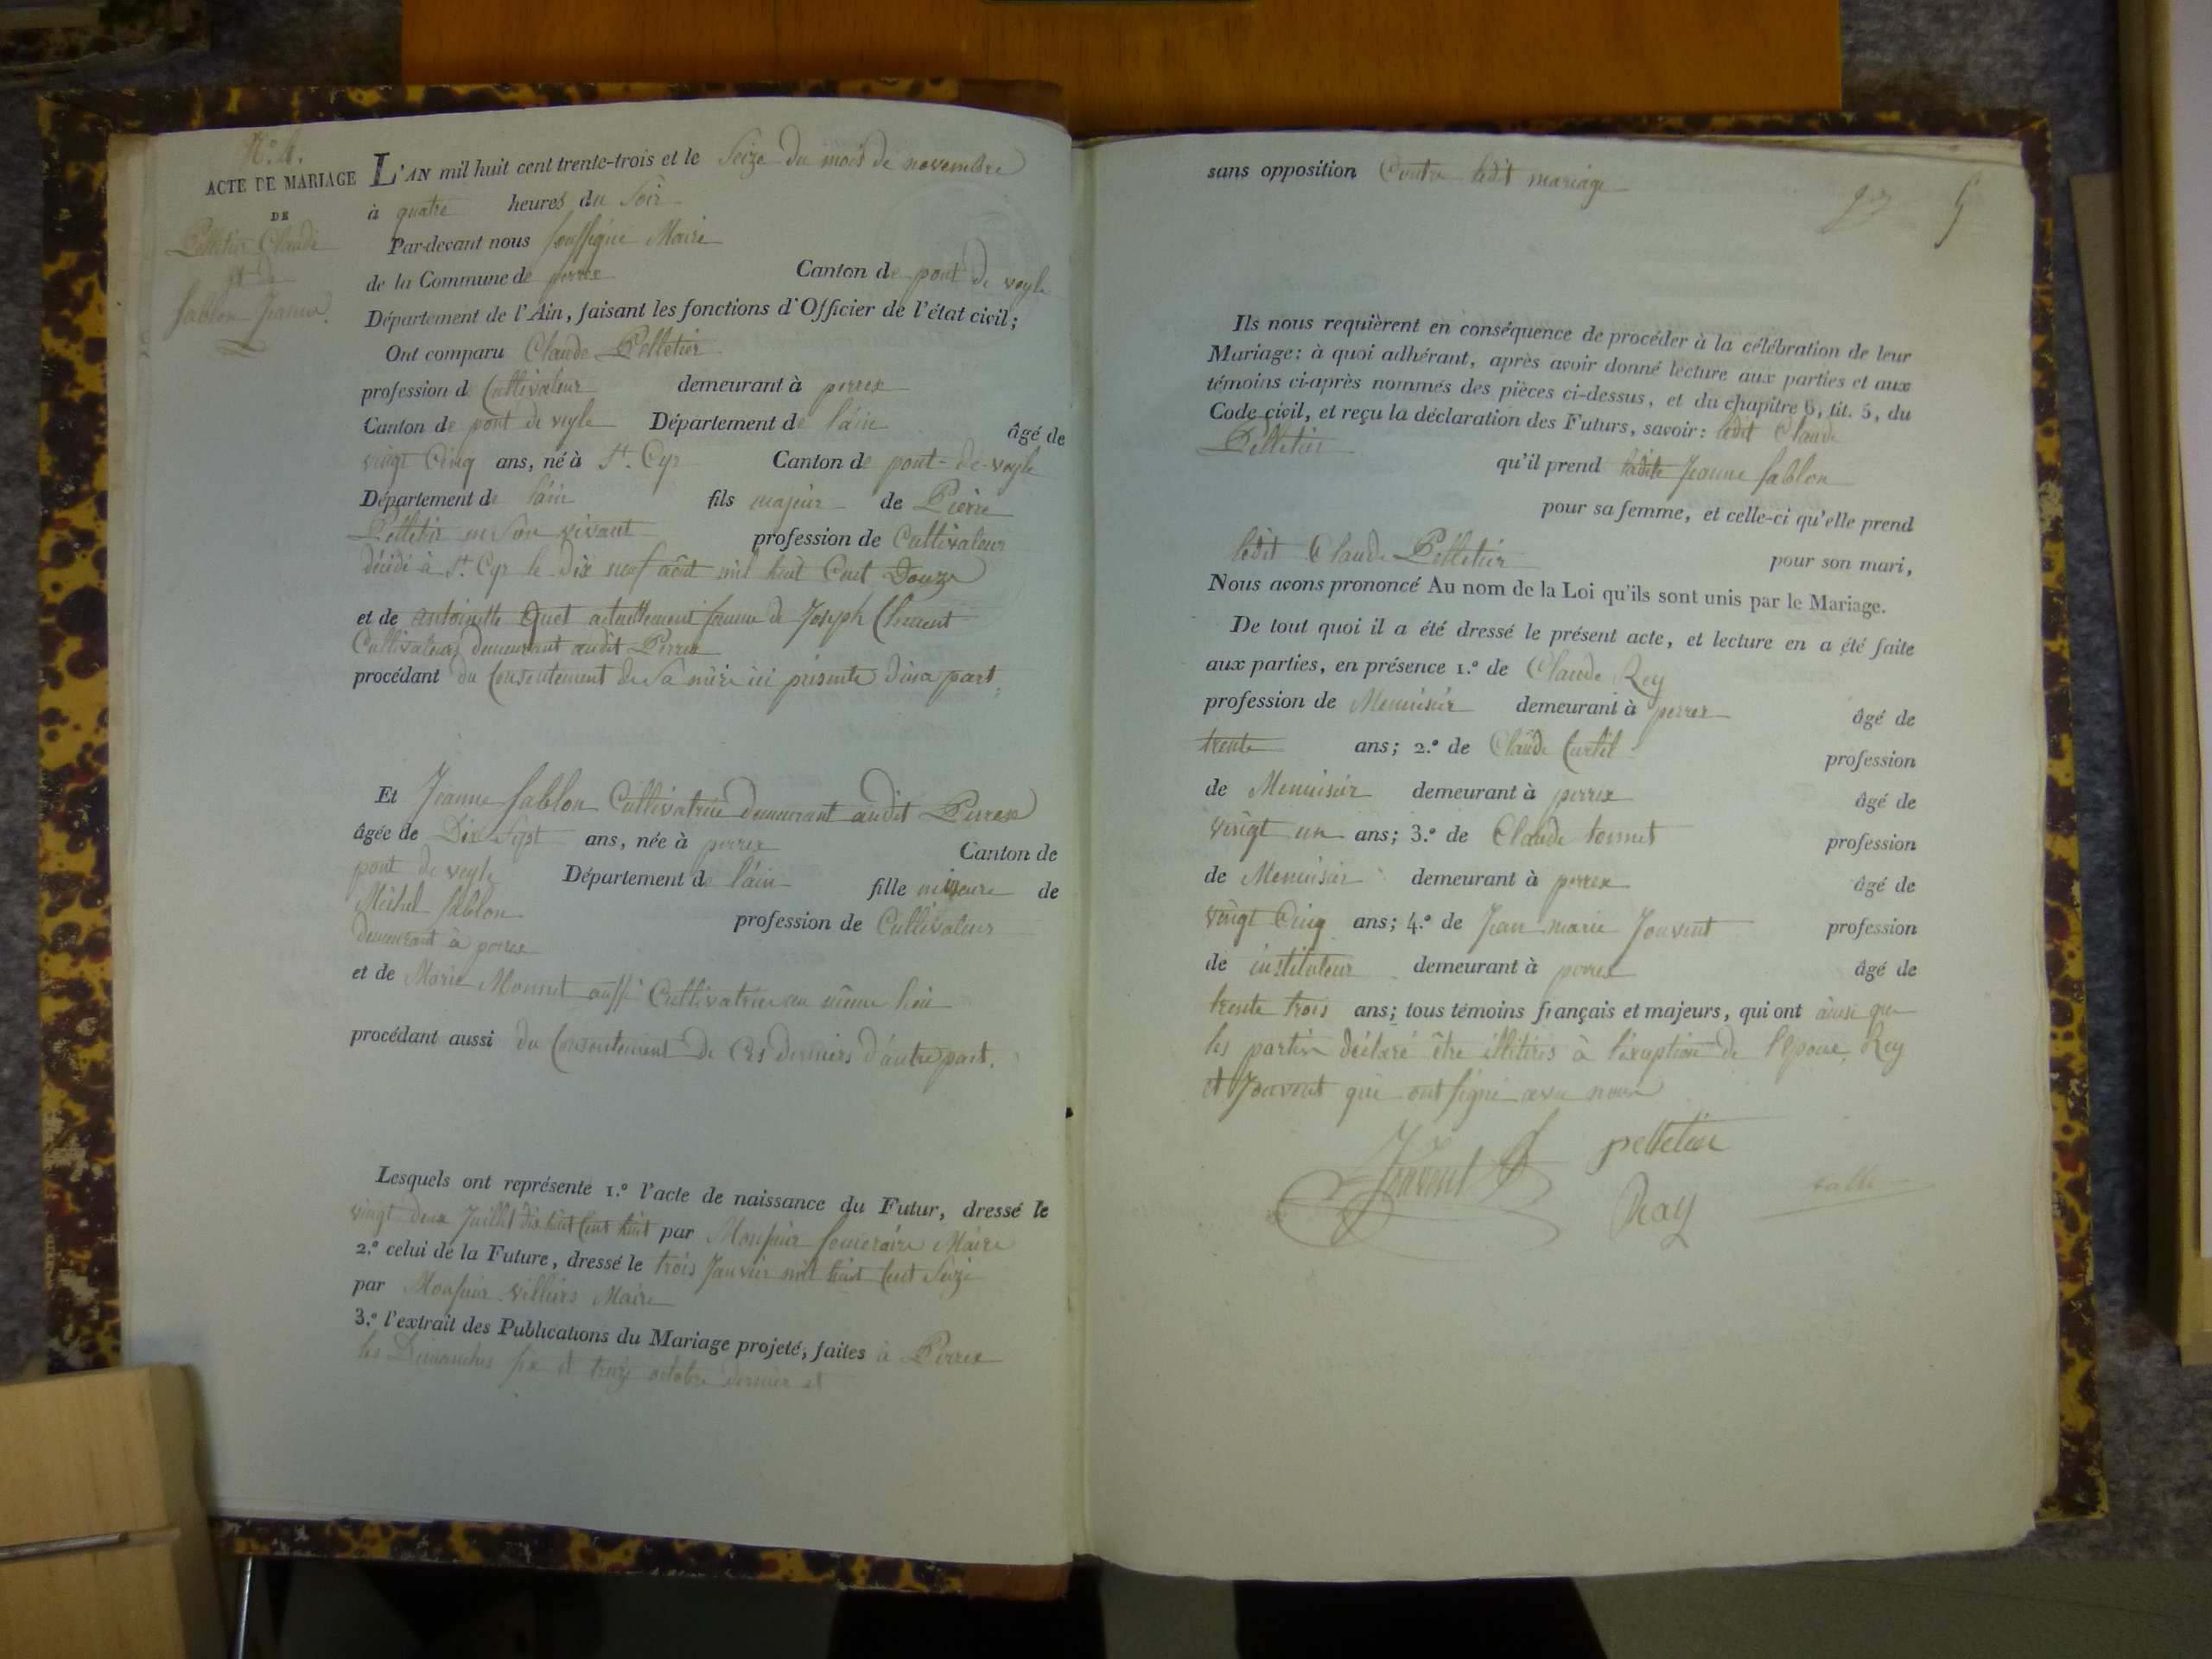 N.o 4.
ACTE DE MARIAGE
DE
Pelletier Claude
et de
Sablon Jeanne
L'AN mil huit cent trente-trois et le Seize du mois de novembre
à quatre heures du Soir
Par-devant nous soussigné Maire
de la Commune de perrex Canton de pont de veyle
Département de l'Ain, faisant les fonctions d'Officier de l'état civil;
Ont comparu Claude Pelletier
profession de Cultivateur demeurant à perrex
Canton de pont de veyle Département de l'ain âgé de
vingt Cinq ans, né à St. Cyr Canton de pont-de-veyle
Département de l'ain fils majeur de Pierre
Pelletier en Son vivant profession de Cultivateur
décédé à St. Cyr le dix neuf août mil huit Cent Douze
et de antoinette Quet actuellement femme de Joseph Clement
Cultivateurs demeurant audit Perrex
procédant du Consentement de Sa mère ici présente d'une part
Et Jeanne Sablon Cultivatrice demeurant audit Perrex
âgée de Dix Sept ans, née à perrex Canton de
pont de veyle Département de l'ain fille mineure de
Michel Sablon profession de Cultivateur
demeurant à perrex
et de Marie Monnet aussi Cultivatrice au même lieu
procédant aussi du Consentement de Ces derniers d'autre part.
Lesquels ont représenté 1.º l'acte de naissance du Futur, dressé le
vingt deux Juillet dix huit Cent huit par Monsieur Maire
2.º celui de la Future, dressé le trois Janvier mil huit Cent Seize
par Monsieur Villiers Maire
3.º l'extrait des Publications du Mariage projeté, faites à Perrex
les Dimanches six et treize octobre dernier et
sans opposition Contre ledit mariage
5
Ils nous requièrent en conséquence de procéder à la célébration de leur
Mariage: à quoi adhérant, après avoir donné lecture aux parties et aux
témoins ci-après nommés des pièces ci-dessus, et du chapitre 6, tit. 5, du
Code civil, et reçu la déclaration des Futurs, savoir: ledit Claude
Pelletier
qu'il prend ladite Jeanne Sablon
pour sa femme, et celle-ci qu'elle prend
ledit Claude Pelletier pour son mari,
Nous avons prononcé Au nom de la Loi qu'ils sont unis par le Mariage.
De tout quoi il a été dressé le présent acte, et lecture en a été faite
aux parties, en présence 1.º de Claude Rey
profession de Menuisier demeurant à perrex âgé de
trente ans; 2.º de Claude Curtil profession
de Menuisier demeurant à perrex âgé de
vingt un ans; 3.º de Claude profession
de Menuisier demeurant à perrex âgé de
vingt Cinq ans; 4.º de Jean marie Jouvent profession
de instituteur demeurant à perrex âgé de
trente trois ans; tous témoins français et majeurs, qui ont ainsi que
les parties déclaré être illitérés à l'exception de l'époux, Rey
et Jouvent qui ont signé avec nous
Jouvent pelletier
Ray